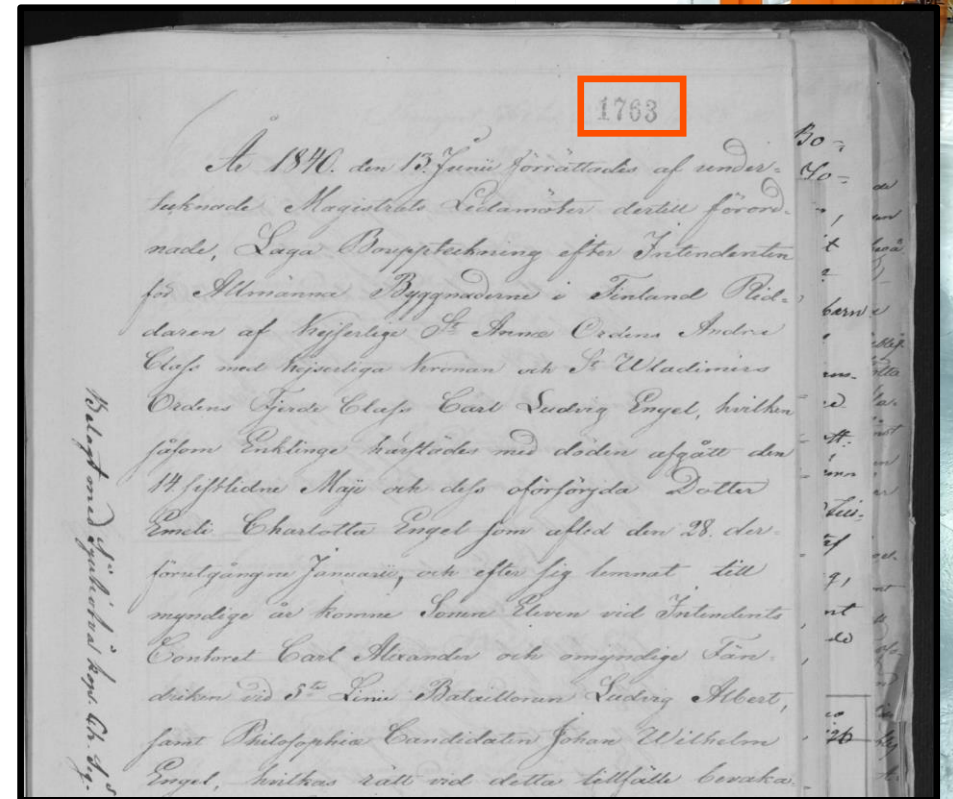 1763
År 1840. den 13. Junii förrättades af under-
tecknade Magistrats Ledamöter dertill förord-
nade, Laga Bouppteckning efter Intendenten
för Allmänna Byggnaderne i Finland Rid-
daren af Kejserliga St Annæ Ordens Andra
Class med Kejserliga Kronan och St Wladimirs
Ordens Fjerde Class Carl Ludvig Engel, hvilken
såsom Enklinge härstädes med döden afgått den
14. sistlidne Maji och dess oförsörjda Dotter
Emeli Charlotta Engel som afled den 28. der-
förutgångne Januarii, och efter sig lemnat till
myndige år komne Sonen Eleven vid Intendents
Contoret Carl Alexander och omyndige Fän-
driken vid 5te Linie Bataillonen Ludvig Albert,
samt Philosophiæ Candidaten Johan Wilhelm
Engel, hvilkas rätt vid detta tillfälle bevaka-
Belagt med
Bo-
barn